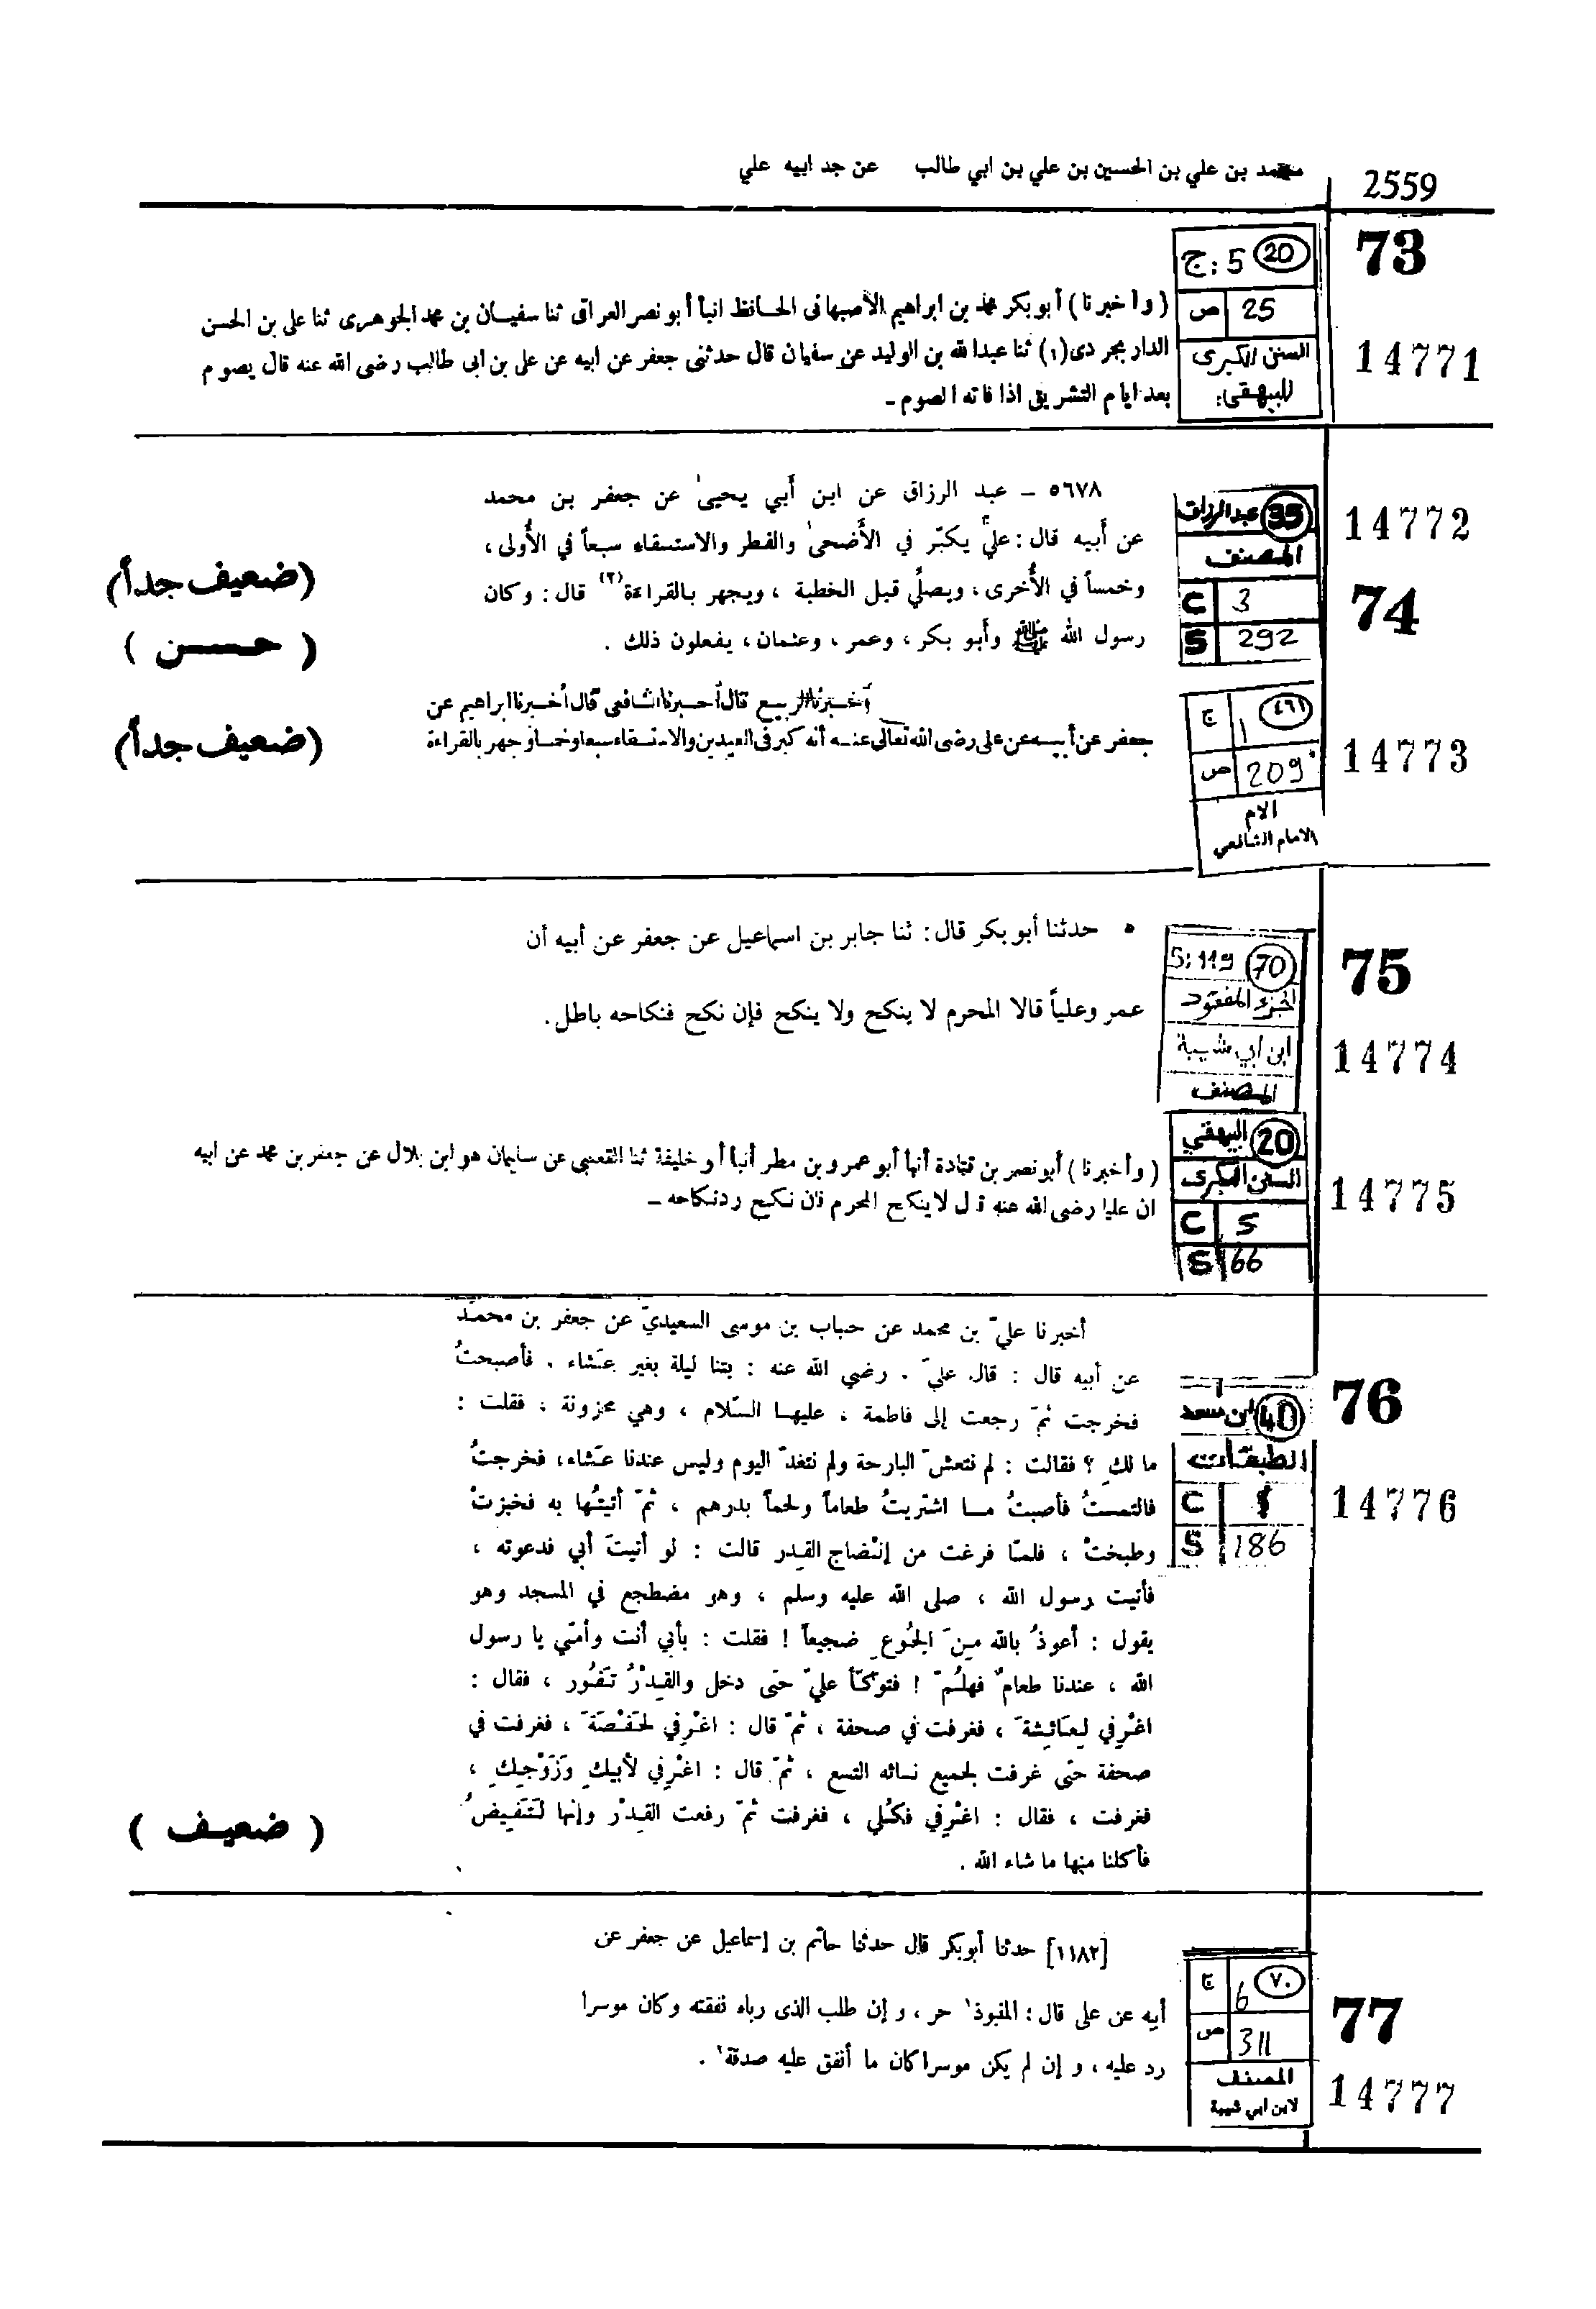 محمد بن علي بن الحسين بن علي بن ابي طالب عن جد ابيه علي
2559
73
20 5 : ج
25 ص
السنن الكبرى
للبيهقي :
14771
( وأخبرنا ) أبوبكر محمد بن ابراهيم الأصبهانى الحافظ انبأ أبو نصر العراقى ثنا سفيان بن محمد الجوهرى ثنا على بن الحسن
الدار بجردى (١) ثنا عبدالله بن الوليد عن سفيان قال حدثنى جعفر عن ابيه عن على بن ابى طالب رضى الله عنه قال يصوم
بعد ايام التشريق اذا فاته الصوم ـ
14772
74
35 عبدالرزاق
المصنف
C 3
S 292
٥٦٧٨ - عبد الرزاق عن ابن أبي يحيىٰ عن جعفر بن محمد
عن أبيه قال : عليّ يكبّر في الأضحىٰ والفطر والاستسقاء سبعاً في الأُولى ،
وخمساً في الأُخرى ، ويصلّي قبل الخطبة ، ويجهر بالقراءة (٢) قال : وكان
رسول الله ﷺ وأبو بكر ، وعمر ، وعثمان ، يفعلون ذلك .
(ضعيف جداً)
( حسن )
٤٦١ ج 1
ص 209
الام
الامام الشافعي
14773
أخبرنا الربيع قال أخبرنا الشافعى قال أخبرنا ابراهيم عن
جعفر عن أبيه عن على رضى الله تعالى عنه أنه كبر فى العيدين والاستسقاء سبعا وخمسا وجهر بالقراءة
(ضعيف جداً)
75
14774
70 S: 119
الجزء المفقود
ابن ابي شيبة
المصنف
• حدثنا أبو بكر قال : ثنا جابر بن اسماعيل عن جعفر عن أبيه أن
عمر وعلياً قالا المحرم لا ينكح ولا ينكح فإن نكح فنكاحه باطل .
20 البيهقي
السنن الكبرى
C 5
S 166
14775
( وأخبرنا ) أبونصر بن قتادة أنبأ أبو عمرو بن مطر أنبأ أو خليفة ثنا القعنبى عن سليمان هو ابن بلال عن جعفر بن محمد عن ابيه
ان عليا رضى الله عنه قال لا ينكح المحرم فان نكح رد نكاحه ـ
76
40 ابن سعد
الطبقات
C 8
S 186
14776
أخبرنا عليّ بن محمد عن حباب بن موسى السعيديّ عن جعفر بن محمّد
عن أبيه قال : قال عليّ ، رضي الله عنه : بتنا ليلة بغير عَشاء ، فأصبحتُ
فخرجت ثمّ رجعت إلى فاطمة ، عليها السّلام ، وهي محزونة ، فقلت :
ما لكِ ؟ فقالت : لم نتعشّ البارحة ولم نتغدّ اليوم وليس عندنا عَشاء ، فخرجتُ
فالتمستُ فأصبتُ مـا اشتريتُ طعاماً ولحماً بدرهم ، ثمّ أتيتُها به فخبزتْ
وطبختْ ، فلمّا فرغت من إنْضاج القِدر قالت : لو أتيتَ أبي فدعوته ،
فأتيت رسول الله ، صلى الله عليه وسلم ، وهو مضطجع في المسجد وهو
يقول : أعوذُ بالله مِنَ الجُوعِ ضجيعاً ! فقلت : بأبي أنت وأمّي يا رسول
الله ، عندنا طعامٌ فهلُمّ ! فتوكّأ عليّ حتى دخل والقِدْرُ تَفُور ، فقال :
اغْرِفي لِعَائِشَةَ ، فغرفت في صحفة ، ثمّ قال : اغْرِفي لحَفْصَةَ ، فغرفت في
صحفة حتى غرفت لجميع نسائه التسع ، ثمّ قال : اغْرِفي لأبيكِ وَزَوْجِكِ ،
فغرفت ، فقال : اغْرِفي فكُلي ، فغرفت ثمّ رفعت القِدْر وإنها لَتَفِيضُ
فأكلنا منها ما شاء الله .
( ضعيف )
٧٠ ج 6
ص 311
المصنف
لابن ابي شيبة
77
14777
[١١٨٢] حدثنا أبوبكر قال حدثنا حاتم بن إسماعيل عن جعفر عن
أبيه عن على قال : المنبوذ ١ حر ، و إن طلب الذى رباه نفقته وكان موسرا
رد عليه ، و إن لم يكن موسرا كان ما أنفق عليه صدقة ٢ .